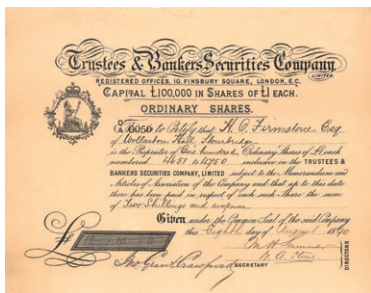 Trustees & Bankers Securities Company
LIMITED
REGISTERED OFFICES, 10, FINSBURY SQUARE, LONDON, E.C.
CAPITAL £100,000 IN SHARES OF £1 EACH.
ORDINARY SHARES.
This is to Certify that H. O. Firmstone Esq
of Wollaston Hall Stourbridge
is the Proprietor of One hundred Ordinary Shares of £1 each
numbered 4651 to 4750 inclusive in the TRUSTEES &
BANKERS SECURITIES COMPANY, LIMITED subject to the Memorandum and
Articles of Association of the Company and that up to this date
there has been paid in respect of each such Share the sum
of Two Shillings and sixpence
Given under the Common Seal of the said Company
this Eighth day of August 1890
DIRECTORS
SECRETARY